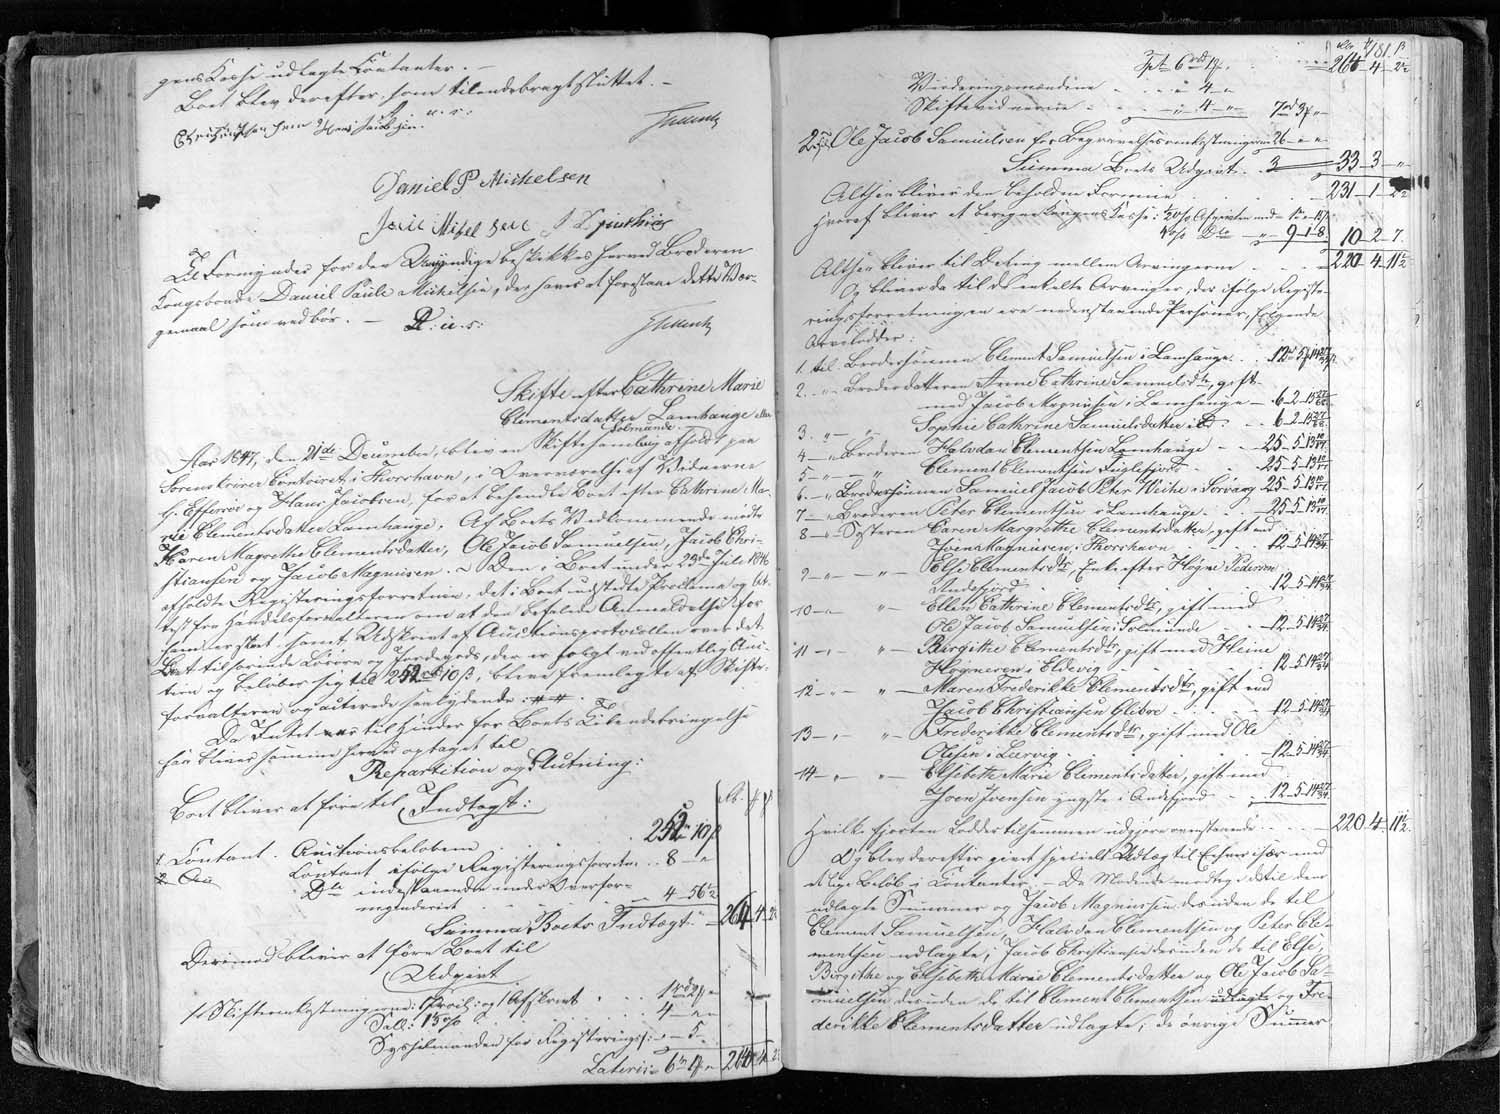 gens Kasse udlagte Contanter. —
Boet blev derefter som tilendebragt sluttet. —
D. u. s.
Hans Jacobsen.
Daniel P Michelsen
Til Formynder for den Umyndige beskikkes herved Broderen
Kongsbonde Daniel Paule Michelsen, der haver at forestaae dette Vær-
gemaal som ved bør. —
D: u. s:
Skifte efter Cathrine Marie
Clementsdatter Lamhauge eller
Solmunde.
Aar 1847, den 21de December, blev en Skiftesamling afholdt paa
Sorenskriver Contoiret i Thorshavn, i Overværelse af Vidnerne
Effersøe og Hans Jacobsen, for at behandle Boet efter Cathrine Ma-
rie Clementsdatter Lamhauge. Af Boets Vedkommende mødte
Karen Magrethe Clementsdatter, Ole Jacob Samuelsen, Jacob Chri-
stiansen og Jacob Magnusen. — Den i Boet under 23de Juli 1846
afholdte Registeringsforretning, det i Boet udstedte Proclama og At-
test fra Handelsforvalteren om at den befalede Anmeldelse for
ham er skeet samt Udskrivt af Auctionsprotocollen over det
Boet tilhørende Løsøre og Jordegods, der er solgt ved offentlig Auc-
tion og beløber sig til 252 rbd 10 β, bleve fremlagte af Skifte-
forvalteren og acterede saalydende: ## .
Da Intet var til Hinder for Boets Tilendebringelse
saa bliver samme herved optaget til
Repartition og Slutning:
Boet bliver at føre til Indtægt:
1. Contant Auctionsbeløbene . . . 252 " 10 β
Contant ifølge Registeringsforretn. . . 8 " "
Dto indestaaende under Overfor-
mynderiet . . . 4 56½
Summa Boets Indtægt " 264 4
Derimod bliver at føre Boet til
Udgivt
1/ Skifteomkostninger: og Afskrivt . . . "
Sall: 4 " "
Sysselmanden for Registerings/: — 5.
Lateris 6 264 4
181.
Tpt 6 264 4
Vurderingsmændene . . . 4 "
Skiftevidnerne . . " 4 "
Ole Jacob Samuelsen for Begravelsesomkostninger 26 " "
Summa Boets Udgivt . . 33 — 3 — "
Altsaa bliver den beholdne Formue . . . 231 — 1
hvoraf bliver at beregne Kongens Kasse:
4 % Dto — " 9 1 8. 10 — 2 — 7.
Altsaa bliver til Deling mellem Arvingerne . . . 220 — 4 — 11½
Og bliver da til de enkelte Arvinger, der ifølge Registe-
ringsforretningen ere nedenstaaende Personer, følgende
Arvelodder:
1. til Brodersønnen Clement Samuelsen i Lamhauge . . 12 5
2. " — Broderdatteren Anne Cathrine Samuelsdtr, gift
med Jacob Magnusen i Lamhauge — 6 — 2 — 15
3. " — " Sophie Cathrine Samuelsdatter . . 6 — 2 — 15
4 — " Broderen Halvdan Clementsen Lamhauge . . 25 — 5 — 13
5 — " — " Clement Clementsen Fuglefjord . 25 — 5 — 13
6. — " Brodersønnen Samuel Jacob Peter Weihe i Sørvaag 25 — 5 — 13
7 — " Broderen Peter Clementsen i Lamhauge . . 25 — 5 — 13
8 — " Søsteren Caren Margrethe Clementsdatter, gift med
Joen Magnusen i Thorshavn . . 12 — 5 — 14
9 — " — " — Else Clementsdtr, Enke efter Høgne Pedersen
Andefjord . . . 12 — 5 — 14
10 — " — " — Ellen Cathrine Clementsdtr, gift med
Ole Jacob Samuelsen i Solmunde . . 12 — 5 — 14
11 — " — " — Birgithe Clementsdtr, gift med Heine
Høgnesen i Eldevig . . . 12 — 5 — 14
12 — " — " — Maren Frederikke Clementsdtr, gift med
Jacob Christiansen Glibre . . . 12 — 5 — 14
13 — " — " — Frederikke Clementsdtr, gift med Ole
Olesen i Leervig . . . 12 — 5 — 14
14 — " — " — Elsebeth Marie Clementsdatter, gift med
Joen Joensen yngste i Andefjord . . 12 — 5 — 14
Hvilke fjorten Lodder tilsammen udgjøre ovenstaaende . . . 220 — 4 — 11½
Og blev derefter givet specielt Udlæg til Enhver især med
deslige Beløb i Contanter. — De Mødende modtog de til dem
udlagte Summer og Jacob Magnussen desuden de til
Clement Samuelsen, Halvdan Clementsen og Peter Cle-
mentsen udlagte, Jacob Christiansen desuden de til Else,
Birgithe og Elsebeth Marie Clementsdatter og Ole Jacob Sa-
muelsen desuden de til Clement Clementsen udlagte og Fre-
derikke Clementsdatter udlagte, de øvrige Summer